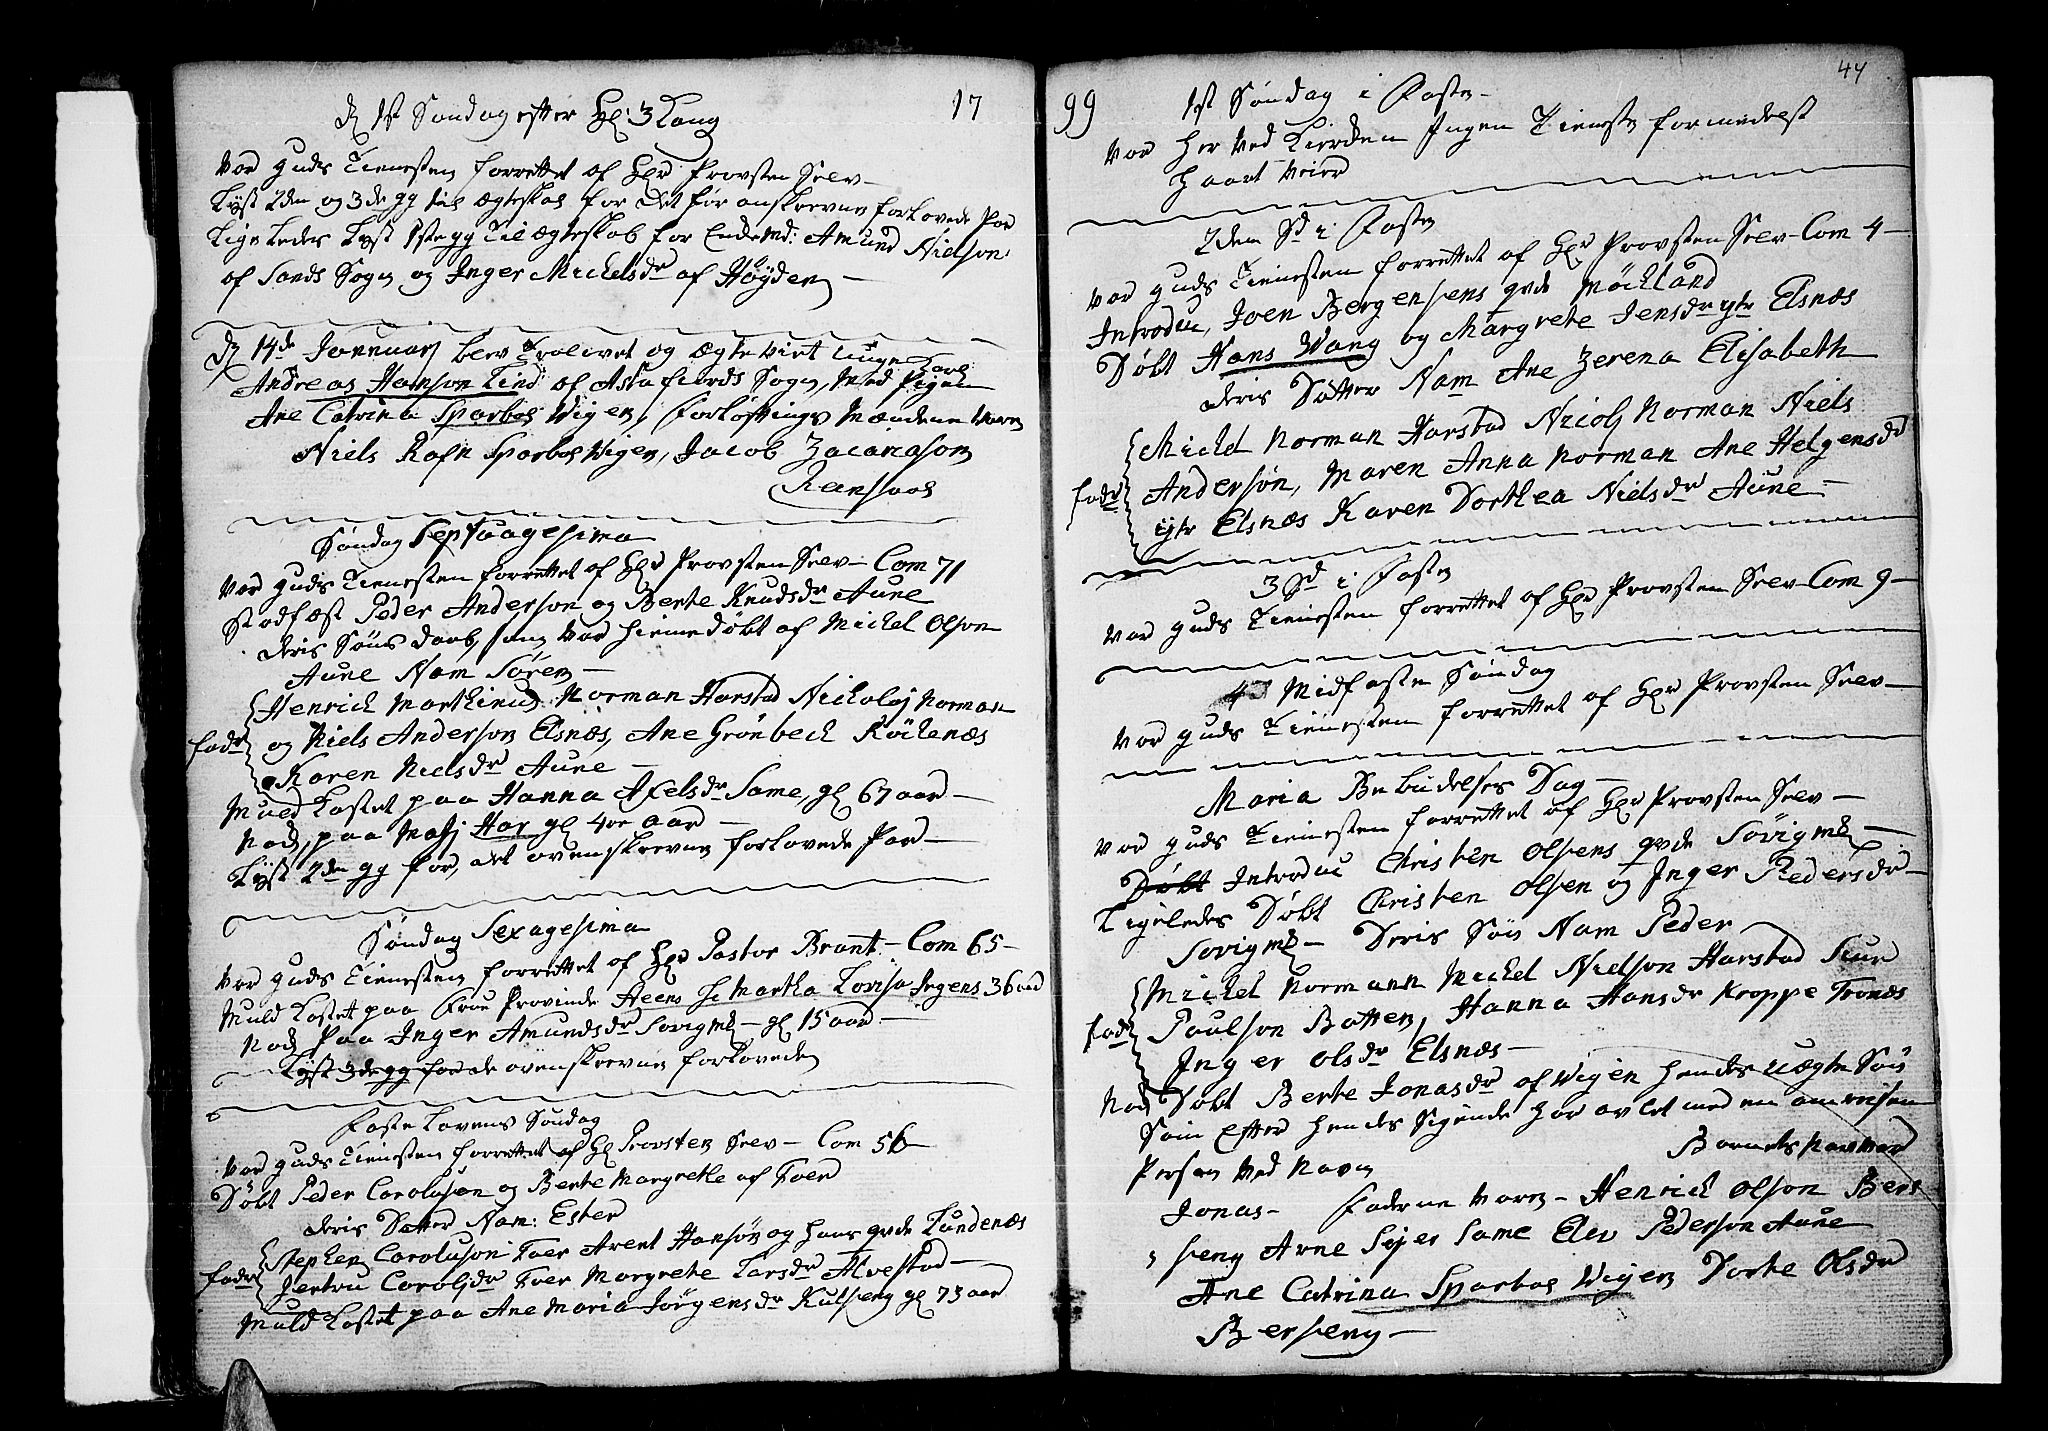 17
d 1st Søndag efter Hel: 3 Kong
var guds Tienesten forrettet af Her Provsten Selv
Lyst 2den og 3de gg til ægteskab for det før anskrevne forlovede Par
Lige Ledes Lyst 1ste gg Til ægteskab for Amund Nielson
af Sands Sogn og Inger Mickelsdr af Høyden
d 14de Januarj blev Trolovet og ægteviet unge Karl
Andreas Hanson Lind af Astafiords Sogn, Med Pigen
Ane Catrina Sparboe Wigen, forløftnings Mændene varen
Niels Rafn Sparboe Wigen, Jacob Zacariason
Søndag Septuagesima
var guds Tienesten forrettet af Her Provsten Selv - Com 71
Stadfæst Peder Anderson og Berte Knudsdr Aune
deris Søns daab, som var hiemedøbt af Mickel Olson
Aune Nam Søren -
Henrick Marthinus Norman Harstad Nickolaj Norman
fadr og Niels Anderson Elsnæs, Ane Grønbeck Røckenæs
Karen Nielsdr Aune -
Muld kastet paa Hanna Axelsdr Same, gl 67 aar -
Nock, paa Har gl 4re aar -
Lyst 2den gg for, det ovenskrevne forlovede Par -
Søndag Sexagesima
var guds Tienesten forrettet af Her Pastor Brant - Com 65 -
Muld kastet paa Frue Provinde Steens Martha Lovisa Irgens 36 aar
Nock Paa Inger Amundsdr Søvigml - gl 15 aar -
Lyst 3de gg for de ovenskrevne forlovede
Faste Lavens Søndag
var guds Tienesten forrettet af Hl Provsten Selv - Com 56
Døbt Peder Carolusen og Berte Margrethe af
deris Datter Nam: Ester
Stephen Caroluson Arent Hansøn og hans qvde Lundenæs
fadr Carolsdr Margrete Larsdr Alvestad -
Muld kastet paa Ane Maria Jørgensdr Kulseng gl 73 aar
99
44
1st Søndag i Fasten -
var her ved Kiercken Ingen Tieneste formedelst
haart veier
2den Sd i Fasten
var guds Tienesten forrettet af Her Provsten Selv - Com 4 -
Introdu, Joen Bergensens qvde Møckland
Døbt Hans Wang og Margrete Jensdr ytr Elsnæs
deris Datter Nam Ane Zerena Elisabeth
Mickel Norman Harstad Nicolj Norman Niels
fadr Andersøn, Maren Anna Norman Ane Helgensdr
ytr Elsnæs Karen Dorthea Nielsdr Aune -
3 Sd i Fasten
var guds Tienesten forrettet af Her Provsten Selv - Com 9 -
4 Midfaste Søndag
var guds Tienesten forrettet af Her Provsten Selv -
Maria Bebudelses Dag -
var guds Tienesten forrettet af Her Provsten Selv -
Døbt Introdu Christen Olsens qvde Søvigml -
Ligeledes Døbt Christen Olsen og Inger Pedersdr -
Søvigml - Deris Søn Nam Peder
Mickel Normann Mickel Nielson Harstad
fadr Paulson Batten, Hanna Hansdr Kroppe Tronæs
Inger Olsdr Elsnæs -
Nock Døbt Berte Jonasdr af Wigen hendes uægte Søn
Som efter hendes Sigende har avlet med en omreisen
Person ved Navn Barnets Navn var
Jonas - Faderne varen - Henrick Olson Ber
seng Arne Same Elev Pederson Aune
Ane Catrina Sparboe Wigen Dorte Olsdr
Berseng -